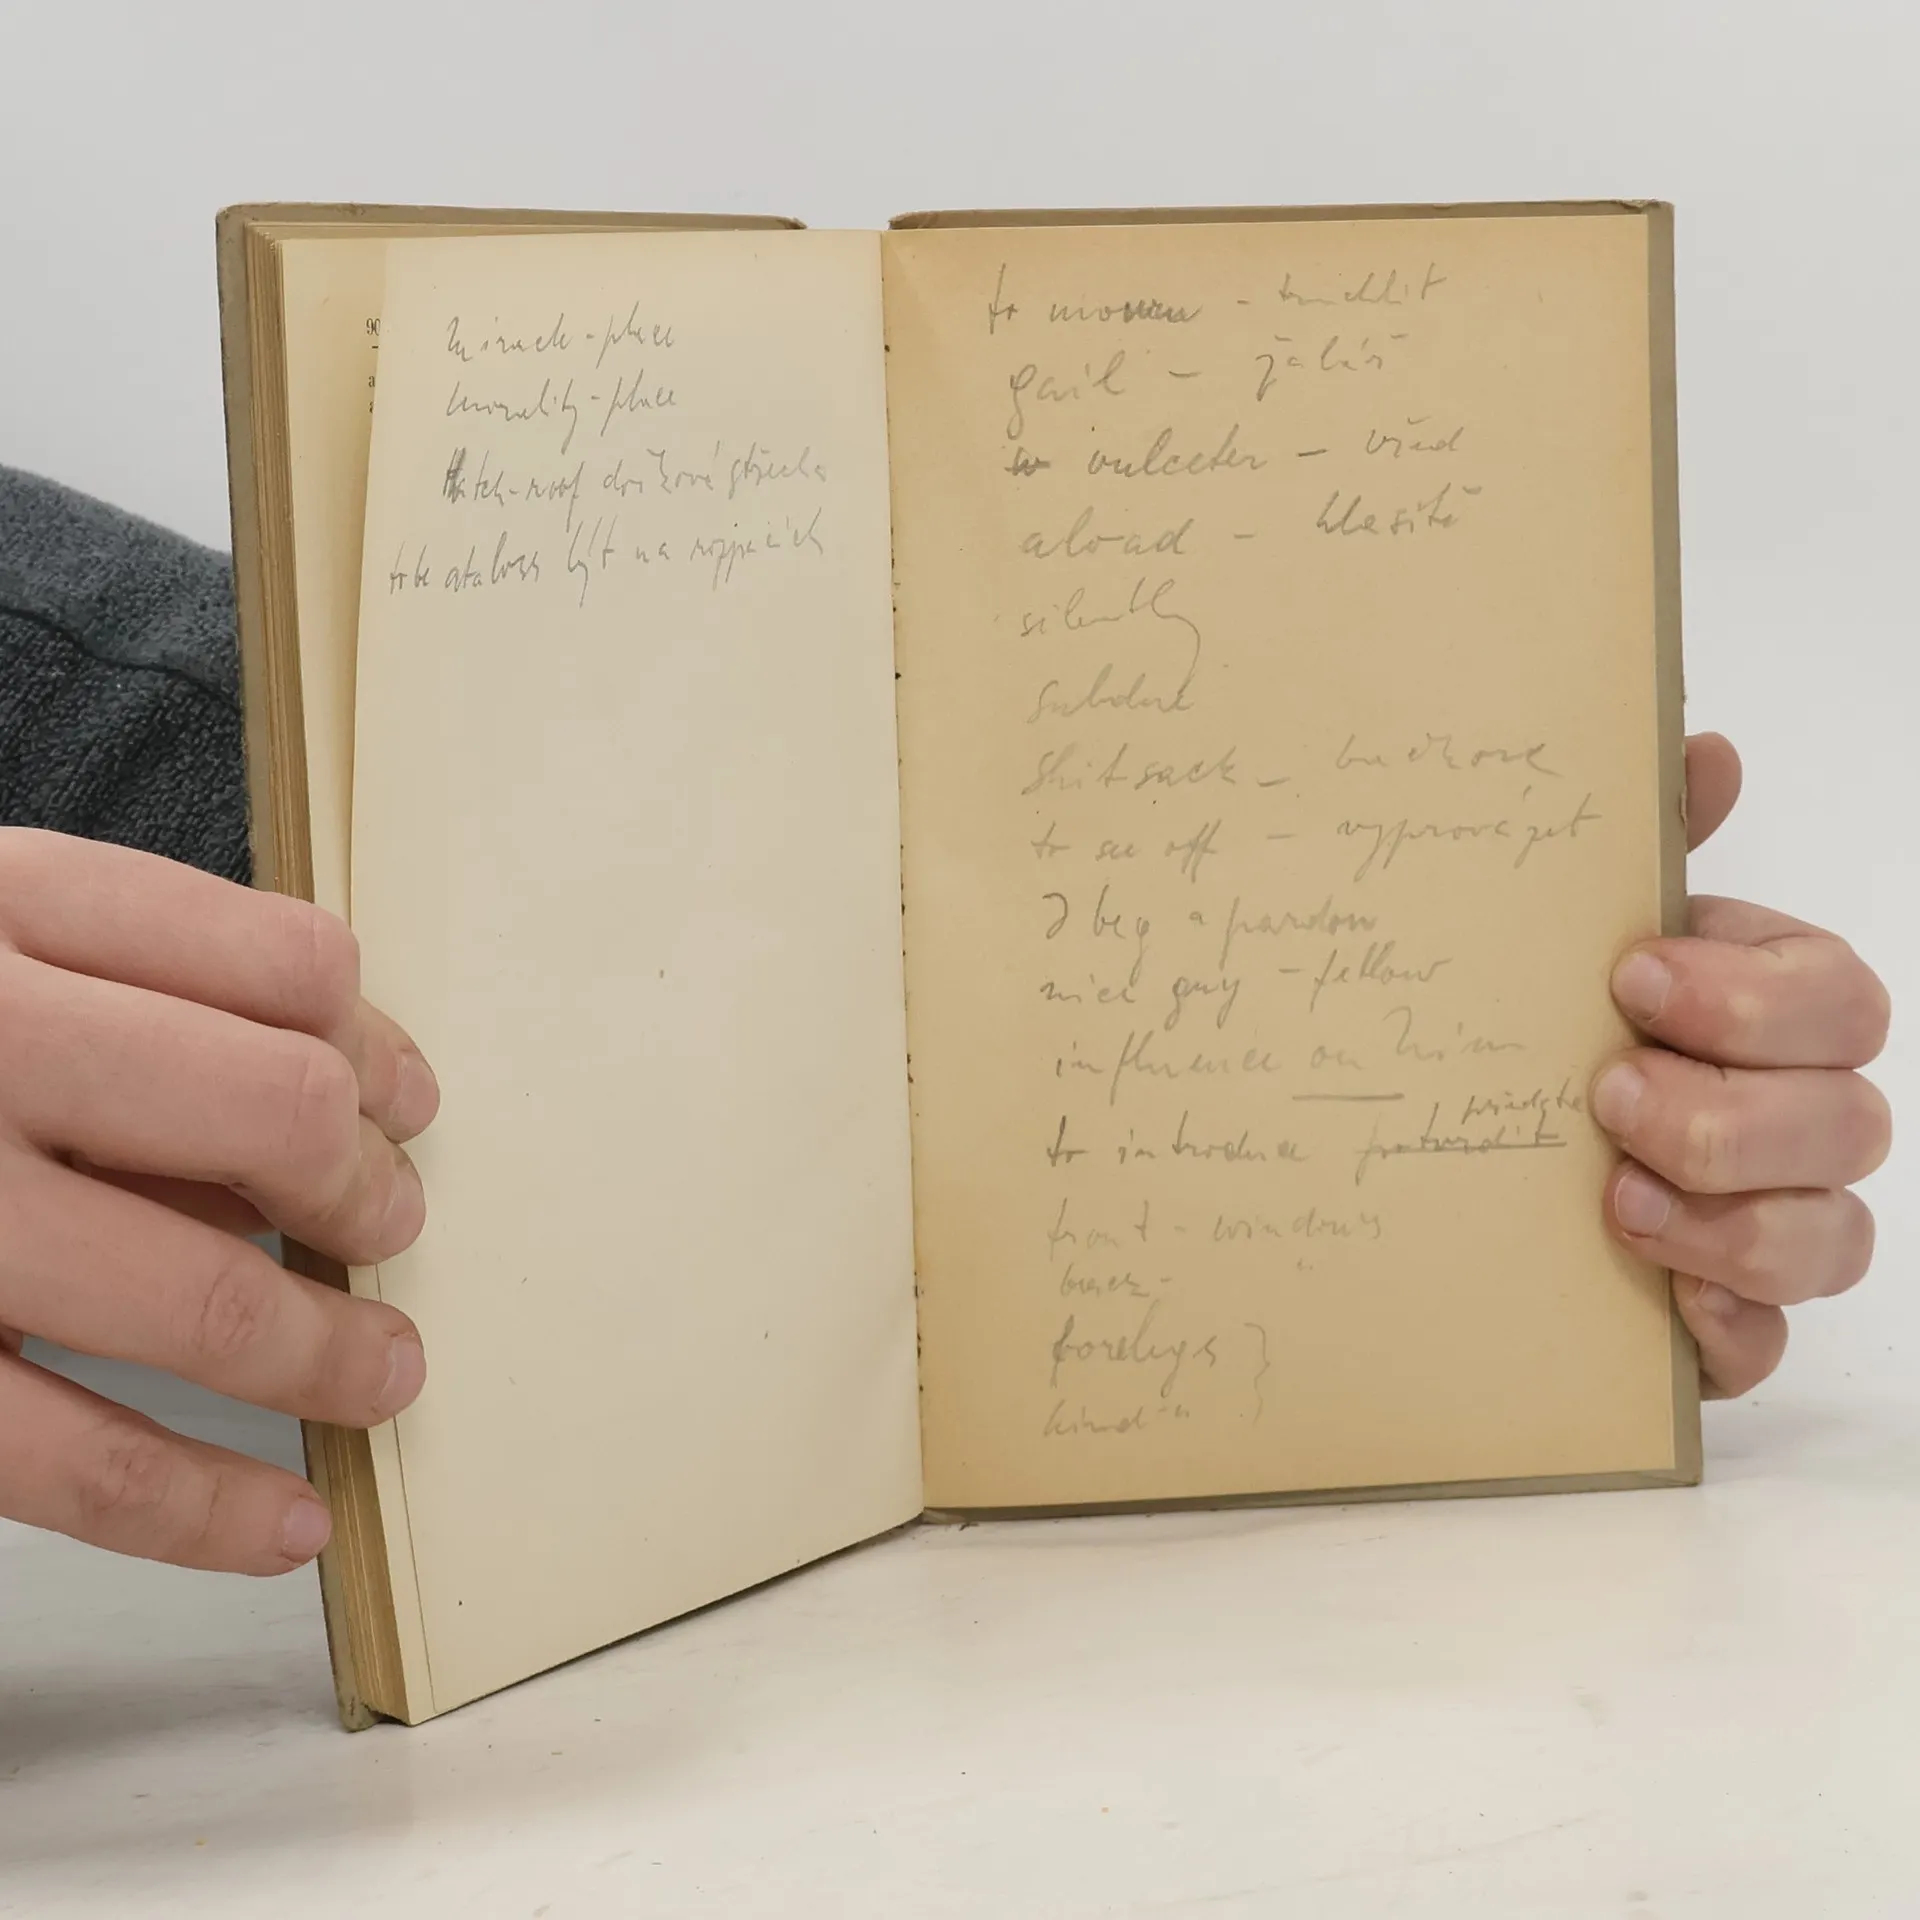 90
a
a
Miracle-place
Morality-place
thatch-roof došková střecha
to be at a loss být na rozpacích
to mourn - truchlit
gail - žalář
vulceter - vřed
aload - hlasitě
silently
subdue
Shitsack -
to see off - vyprovázet
I beg a pardon
nice guy - fellow
influence on him
to introduce
front - windows
back - "
forelegs }
hind - "